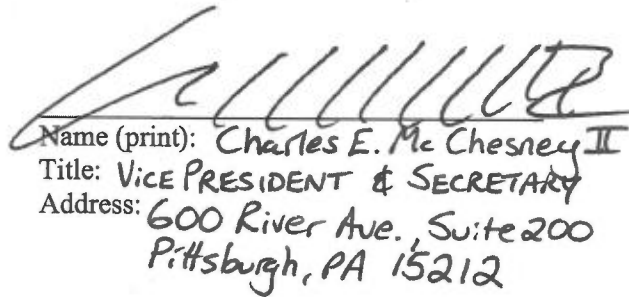 Name (print): Charles E. McChesney II
Title: VICE PRESIDENT & SECRETARY
Address: 600 River Ave., Suite 200
Pittsburgh, PA 15212